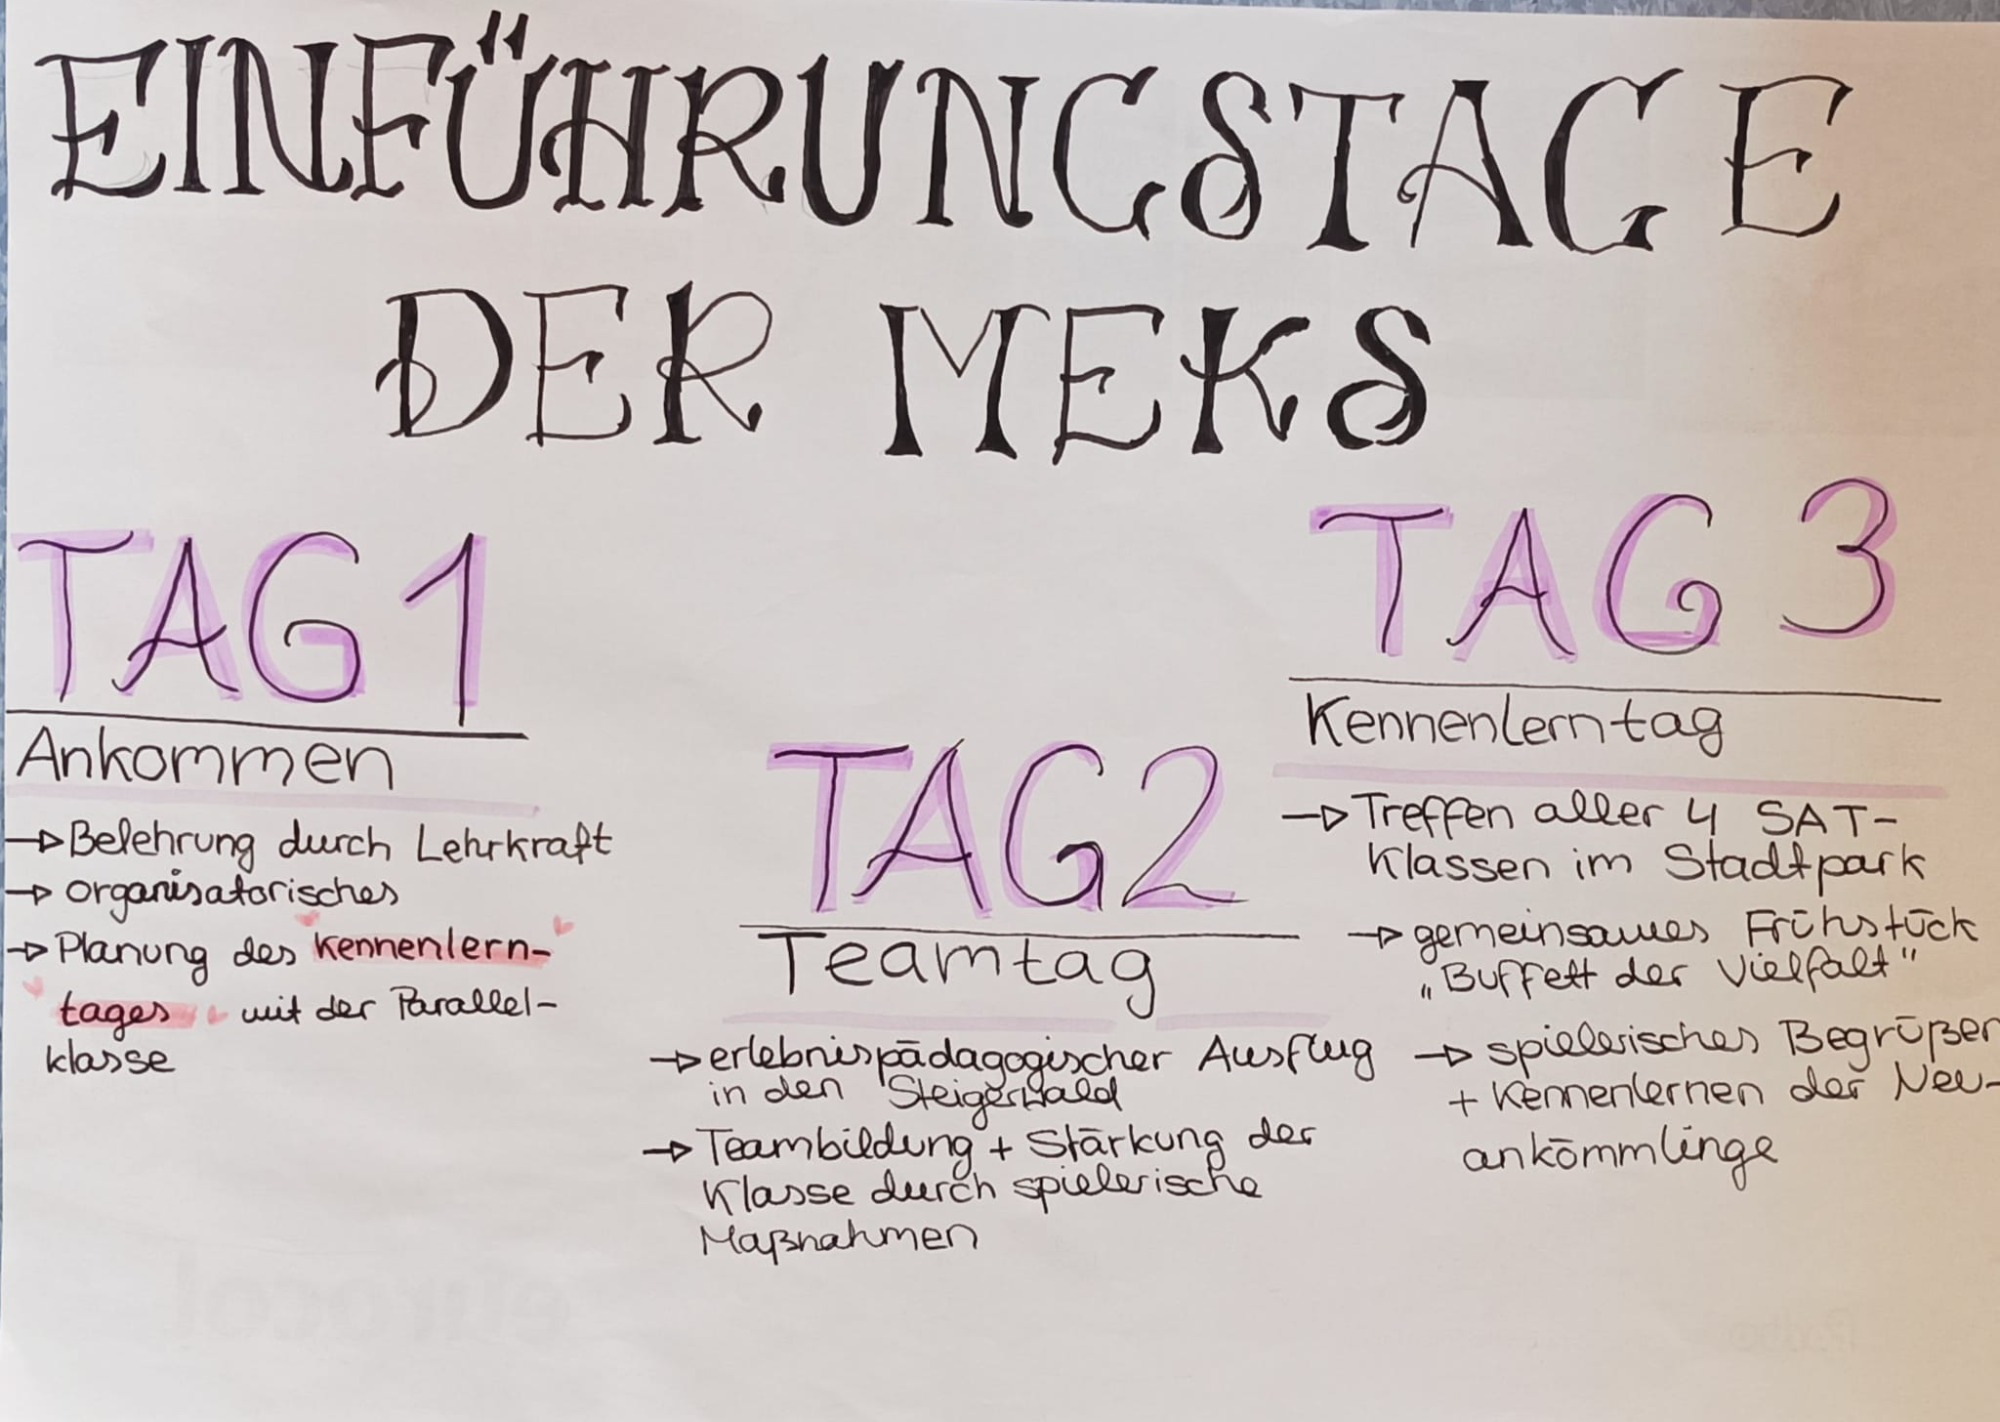 EINFÜHRUNGSTAGE
DER MEKS
TAG 1
Ankommen
→ Belehrung durch Lehrkraft
→ organisatorisches
→ Planung des Kennenlern-
tages mit der Parallel-
klasse
TAG 2
Teamtag
→ erlebnispädagogischer Ausflug
in den Steigerwald
→ Teambildung + Stärkung der
Klasse durch spielerische
Maßnahmen
TAG 3
Kennenlerntag
→ Treffen aller 4 SAT-
Klassen im Stadtpark
→ gemeinsames Frühstück
„Buffett der Vielfalt"
→ spielerisches Begrüßen
+ Kennenlernen der Neu-
ankömmlinge